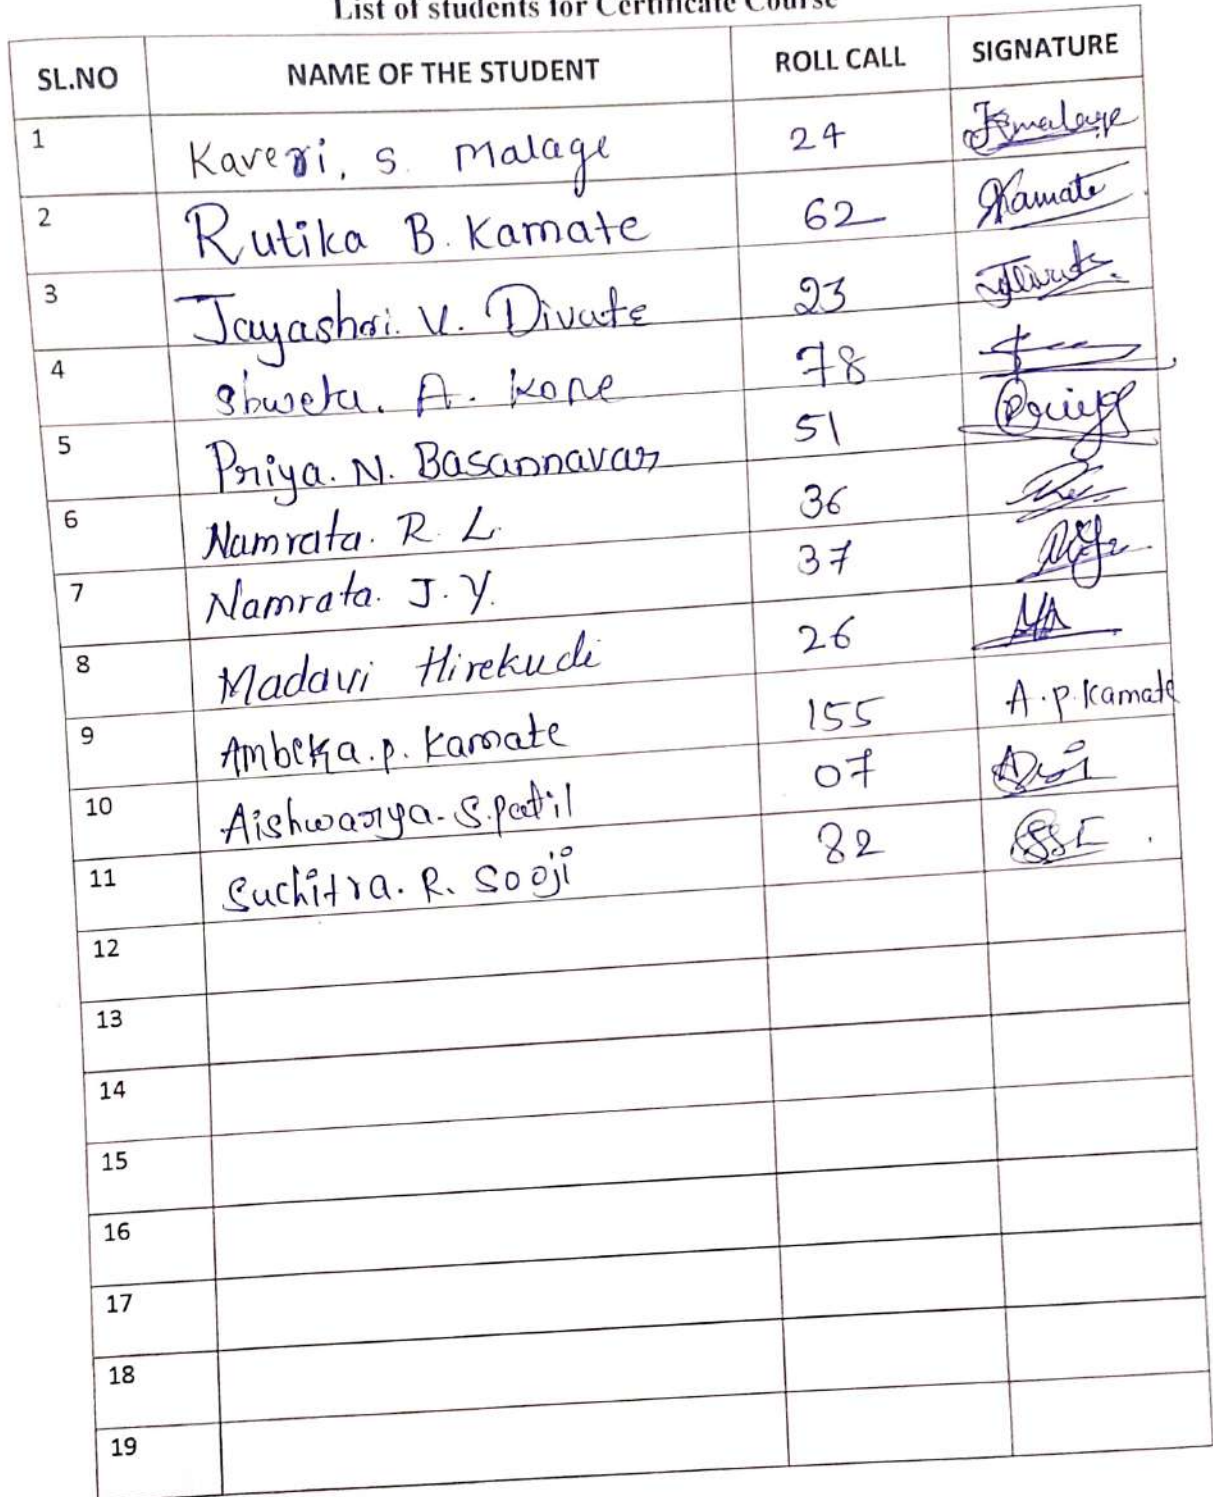 List of students for Certificate Course
SL.NO NAME OF THE STUDENT ROLL CALL SIGNATURE
1 Kaveri, S. Malage 24
2 Rutika B. Kamate 62 Kamate
3 Jayashri. V. Divate 23
4 Shweta. A. Kope 78
5 Priya. N. Basannavar 51
6 Namrata. R. L. 36
7 Namrata. J. Y. 37
8 Madavi Hirekudi 26
9 Ambika. p. Kamate 155 A. p. Kamate
10 Aishwarya. S. patil 07
11 Suchitra. R. Sooji 82
12
13
14
15
16
17
18
19